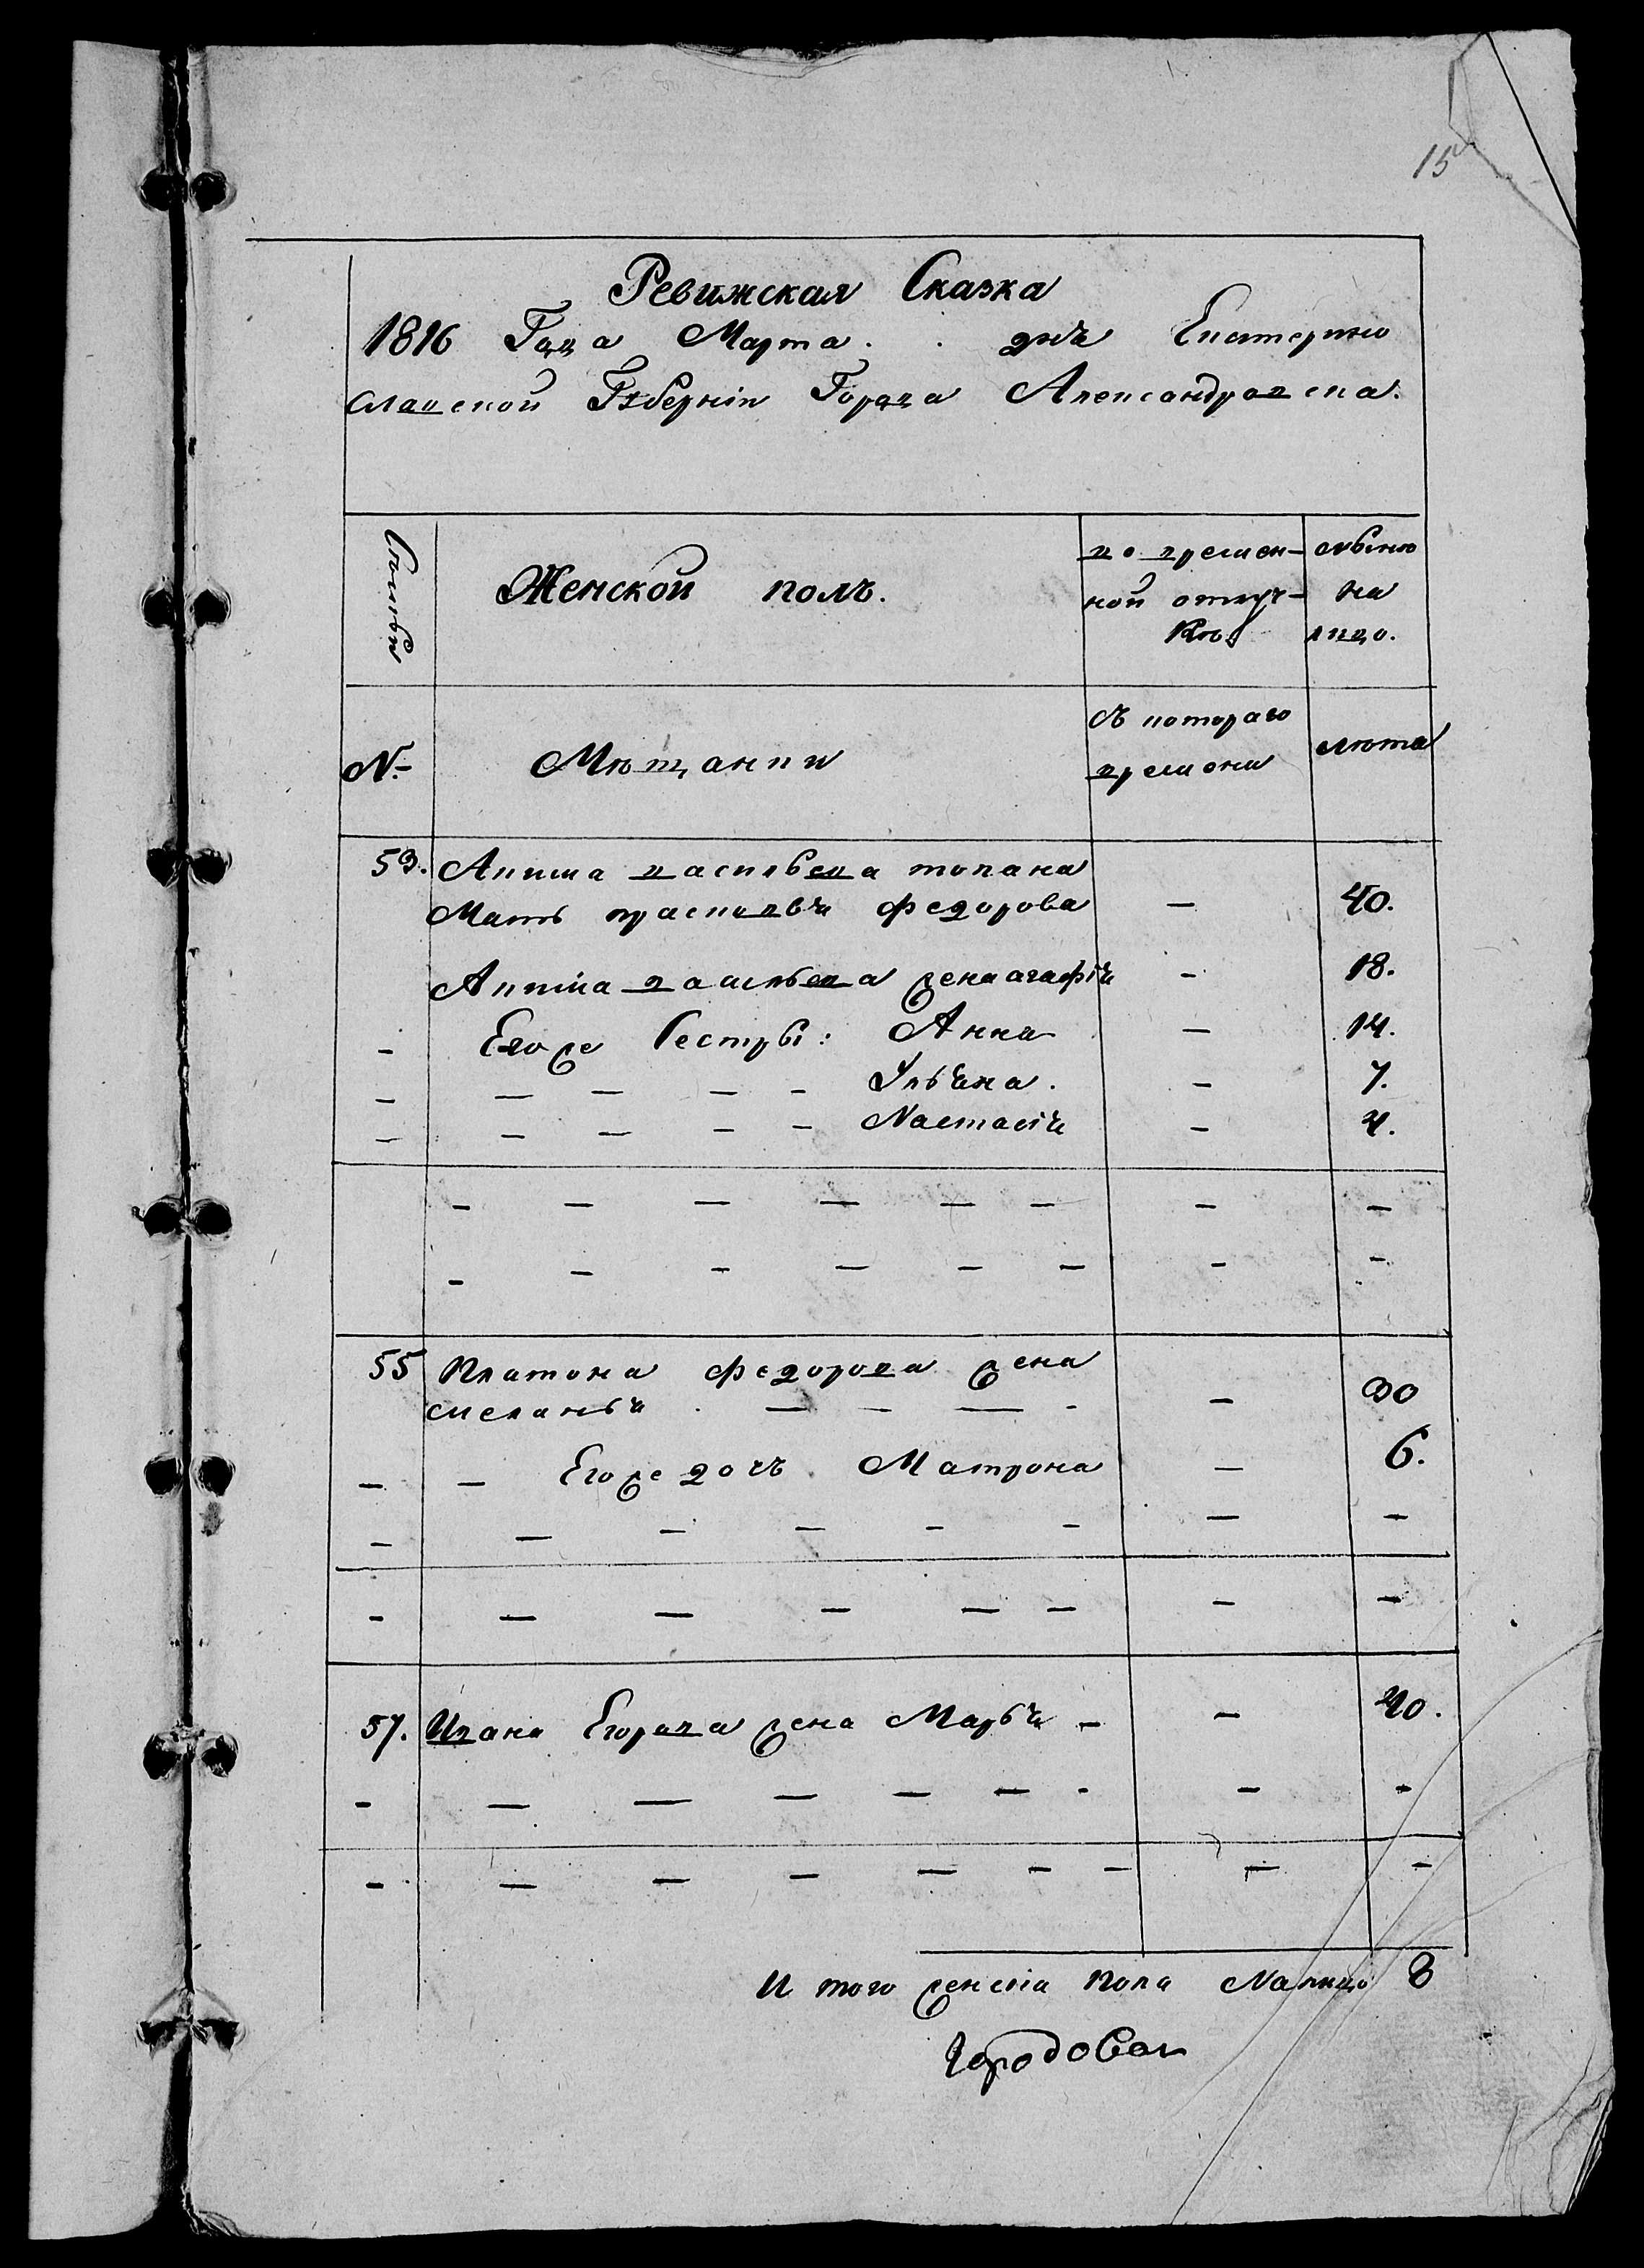 15
Ревижская Сказка
1816 Года Марта . . дня Екатерино
славской Губернiи Города Александровска.
Семьи
Женской полъ.
во времен-
ной отлуч-
кѣ
нынѣ
на
лицо.
№
Мѣщанки
Съ котораго
времени
лѣта
53. Акима васильева
Мать прасковья федорова — 40.
Акима васильева жена агафiя - 18.
- Его же Сестры: Анна — 14.
- — — — - Ульяна. - 7.
- - — - - Настасiя - 4.
- — — — — - - -
- — - — — — - -
55 Платона федорова жена
меланья . — — — - — 30
— — Его же дочь Матрона — 6.
— — — — - - — —
- — — — — — - —
57. Ивана Егорова жена Марья - - 40.
- — — — — — - — -
- — — — — - — — -
И того женска пола Налицо 8
Городовая